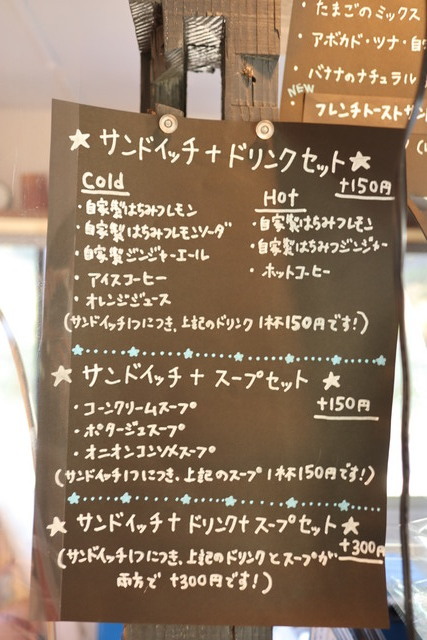 ・たまごのミックス
・アボカド・ツナ・自
・バナナのナチュラル
NEW
・フレンチトーストサン
★サンドイッチ+ドリンクセット★
+150円
Cold
・自家製はちみつレモン
・自家製はちみつレモンソーダ
・自家製ジンジャーエール
・アイスコーヒー
・オレンジジュース
Hot
・自家製はちみつレモン
・自家製はちみつジンジャー
・ホットコーヒー
(サンドイッチ1つにつき、上記のドリンク1杯150円です!)
★サンドイッチ+スープセット★
+150円
・コーンクリームスープ
・ポタージュスープ
・オニオンコンソメスープ
(サンドイッチ1つにつき、上記のスープ1杯150円です!)
★サンドイッチ+ドリンク+スープセット★
+300円
(サンドイッチ1つにつき、上記のドリンクとスープが
両方で+300円です!)